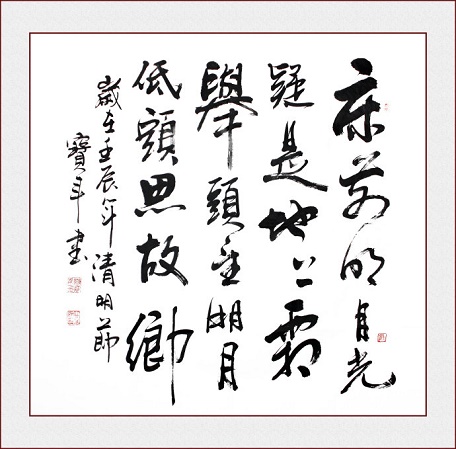 床前明月光
疑是地上霜
舉頭望明月
低頭思故鄉
歲在壬辰年清明節
寶書